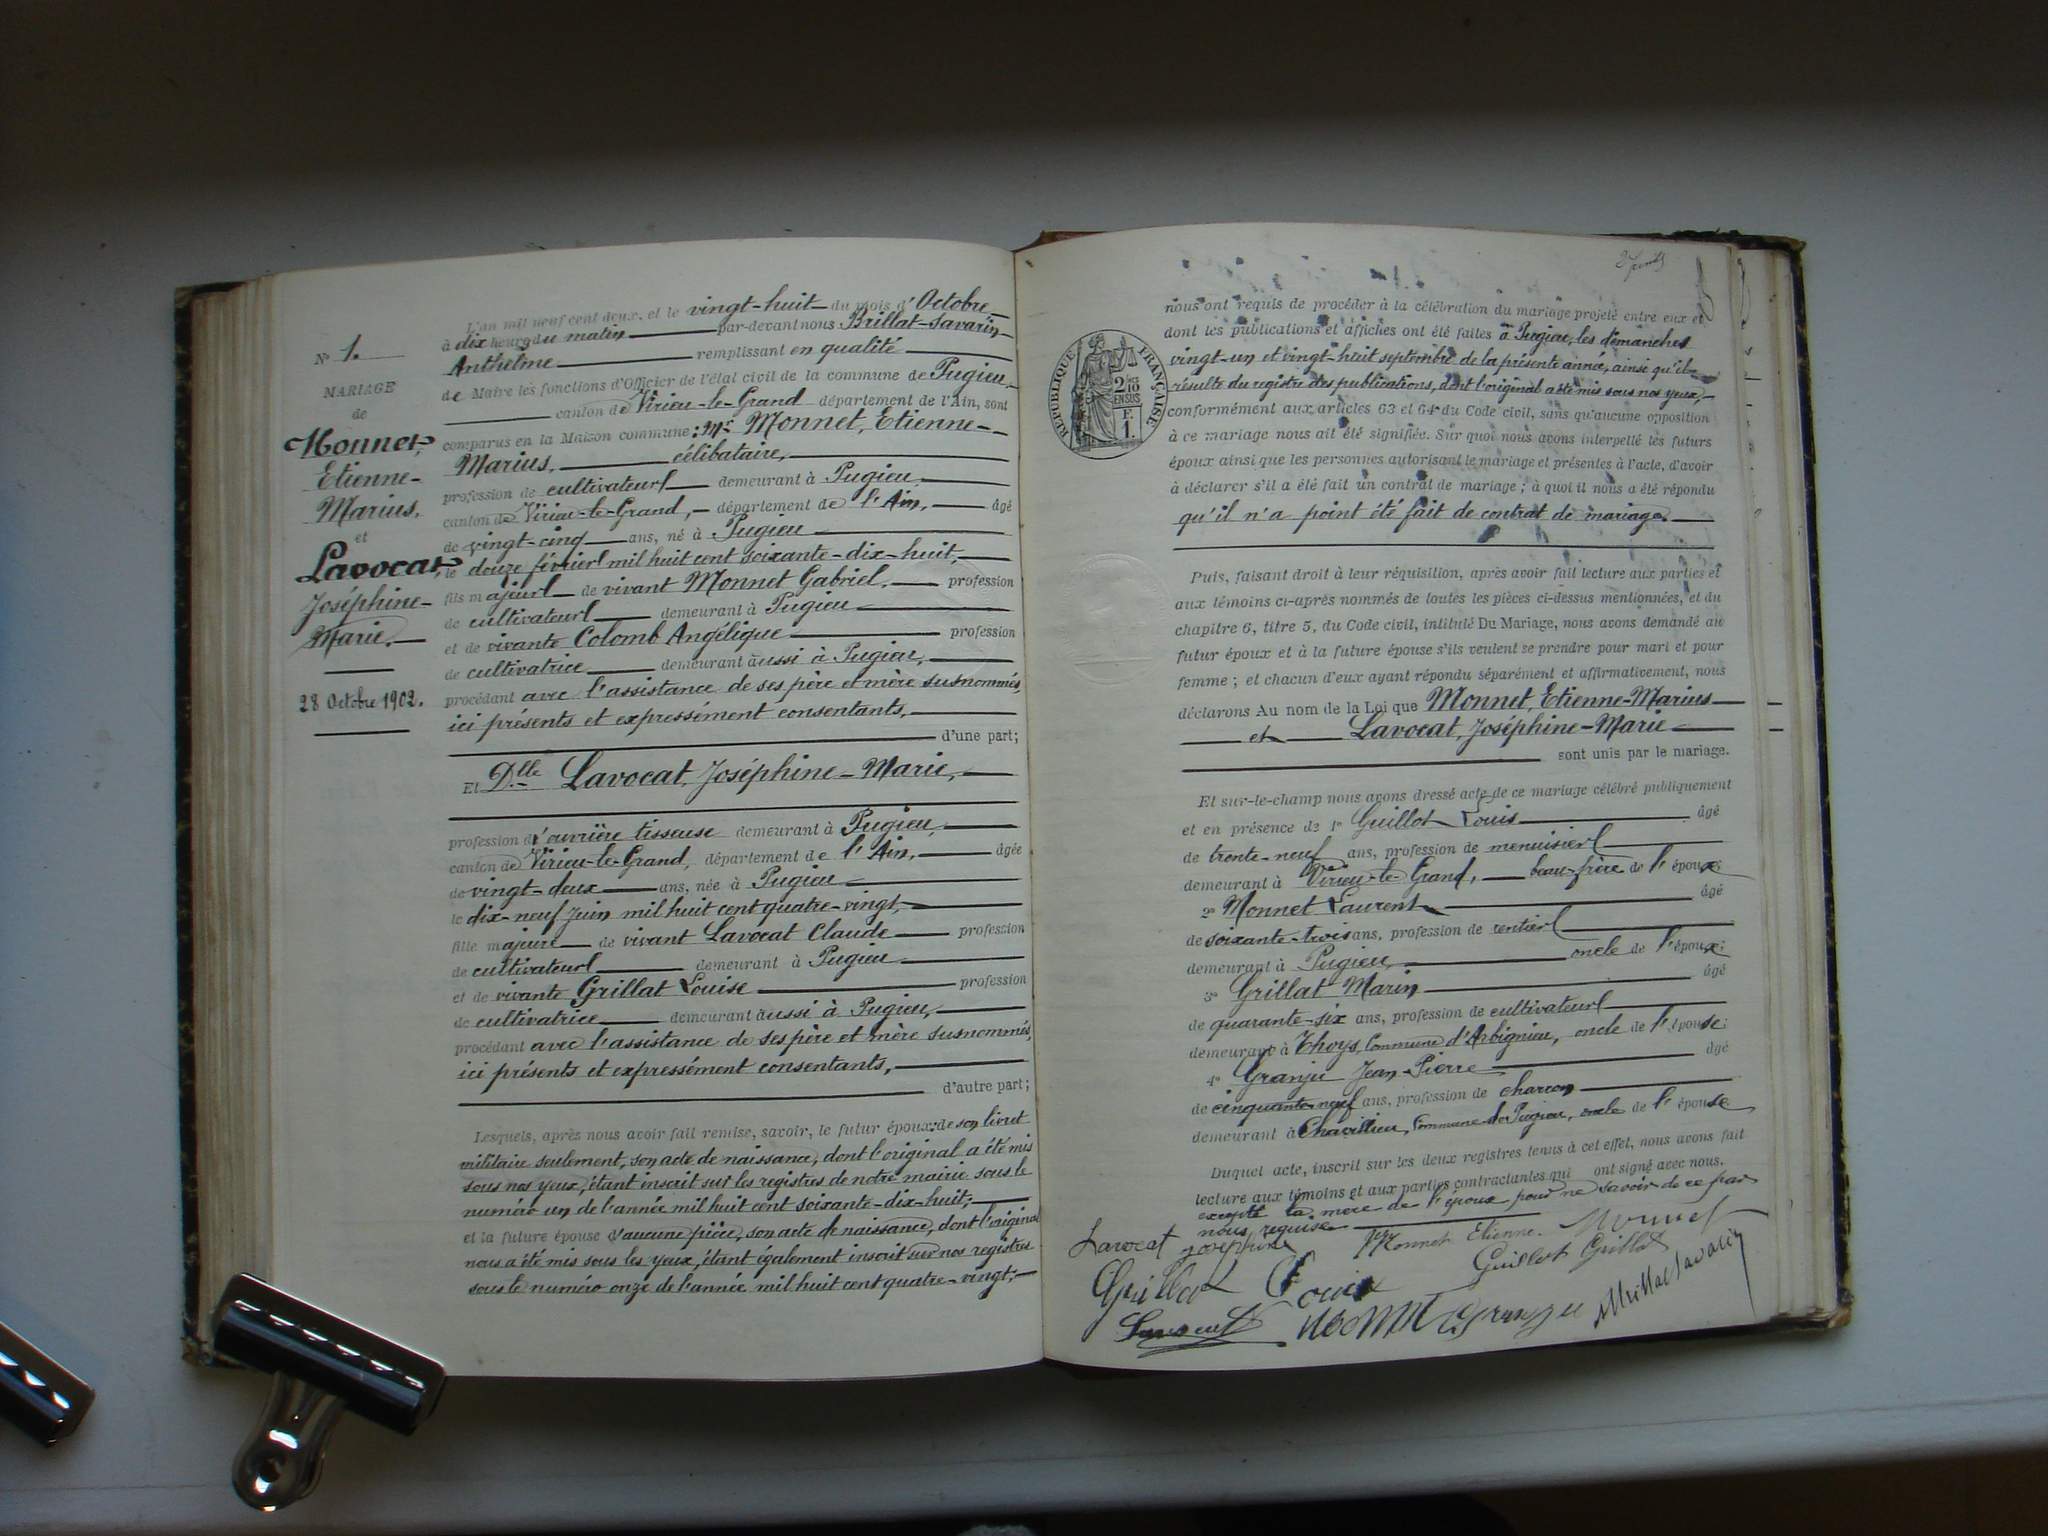 N° 1.
MARIAGE
de
Monnet,
Etienne-
Marius,
et
Lavocat,
Joséphine-
Marie.
28 Octobre 1902.
L'an mil neuf cent deux, et le vingt-huit du mois d'Octobre
à dix heures du matin par-devant nous Brillat-Savarin
Anthelme remplissant en qualité
de Maire les fonctions d'Officier de l'état civil de la commune de Pugieu,
canton de Virieu-le-Grand département de l'Ain, sont
comparus en la Maison commune : Mr Monnet, Etienne-
Marius, célibataire,
profession de cultivateur demeurant à Pugieu,
canton de Virieu-le-Grand, département de l'Ain, âgé
de vingt-cinq ans, né à Pugieu
le douze février mil huit cent soixante-dix-huit,
fils majeur de vivant Monnet Gabriel, profession
de cultivateur demeurant à Pugieu
et de vivante Colomb Angélique profession
de cultivatrice demeurant aussi à Pugieu,
procédant avec l'assistance de ses père et mère susnommés,
ici présents et expressément consentants,
d'une part;
Et Dlle Lavocat, Joséphine-Marie,
profession d'ouvrière tisseuse demeurant à Pugieu,
canton de Virieu-le-Grand, département de l'Ain, âgée
de vingt-deux ans, née à Pugieu
le dix-neuf Juin mil huit cent quatre-vingt,
fille majeure de vivant Lavocat Claude profession
de cultivateur demeurant à Pugieu
et de vivante Grillat Louise profession
de cultivatrice demeurant aussi à Pugieu,
procédant avec l'assistance de ses père et mère susnommés,
ici présents et expressément consentants,
d'autre part;
Lesquels, après nous avoir fait remise, savoir, le futur époux: de son livret
militaire seulement, son acte de naissance, dont l'original a été mis
sous nos yeux, étant inscrit sur les registres de notre mairie sous le
numéro un de l'année mil huit cent soixante-dix-huit;
et la future épouse d'aucune pièce, son acte de naissance, dont l'original
nous a été mis sous les yeux, étant également inscrit sur nos registres
sous le numéro onze de l'année mil huit cent quatre-vingt;
RÉPUBLIQUE FRANÇAISE
2/10 EN SUS
F.
1.
nous ont requis de procéder à la célébration du mariage projeté entre eux et
dont les publications et affiches ont été faites à Pugieu, les dimanches
vingt-un et vingt-huit septembre de la présente année, ainsi qu'il
résulte du registre des publications, dont l'original a été mis sous nos yeux,
conformément aux articles 63 et 64 du Code civil, sans qu'aucune opposition
à ce mariage nous ait été signifiée. Sur quoi nous avons interpellé les futurs
époux ainsi que les personnes autorisant le mariage et présentes à l'acte, d'avoir
à déclarer s'il a été fait un contrat de mariage ; à quoi il nous a été répondu
qu'il n'a point été fait de contrat de mariage.
Puis, faisant droit à leur réquisition, après avoir fait lecture aux parties et
aux témoins ci-après nommés de toutes les pièces ci-dessus mentionnées, et du
chapitre 6, titre 5, du Code civil, intitulé Du Mariage, nous avons demandé au
futur époux et à la future épouse s'ils veulent se prendre pour mari et pour
femme ; et chacun d'eux ayant répondu séparément et affirmativement, nous
déclarons Au nom de la Loi que Monnet, Etienne-Marius
et Lavocat, Joséphine-Marie
sont unis par le mariage.
Et sur-le-champ nous avons dressé acte de ce mariage célébré publiquement
et en présence de 1° Guillot Louis âgé
de trente-neuf ans, profession de menuisier
demeurant à Virieu-le-Grand, beau-frère de l'époux;
2° Monnet Laurent âgé
de soixante-trois ans, profession de rentier
demeurant à Pugieu, oncle de l'époux;
3° Grillat Marin âgé
de quarante-six ans, profession de cultivateur
demeurant à Thoys, Commune d'Arbignieu, oncle de l'épouse;
4° Granju Jean-Pierre âgé
de cinquante-neuf ans, profession de charron
demeurant à Chavillieu, Commune de Pugieu, oncle de l'épouse
Duquel acte, inscrit sur les deux registres tenus à cet effet, nous avons fait
lecture aux témoins et aux parties contractantes qui ont signé avec nous,
excepté la mère de l'époux pour ne savoir de ce par
nous requise
Lavocat Joséphine Monnet Etienne. Monnet
Guillot Grillat
Grillat Louise
Lavocat Monnet Granju Brillat Savarin